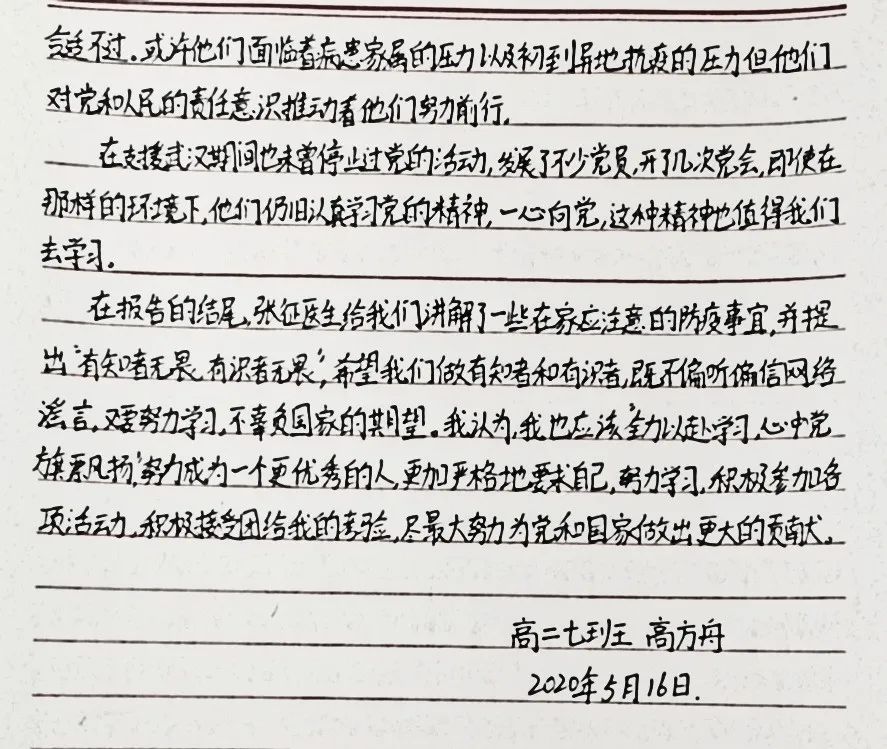 会适不过。或许他们面临着病患家属的压力以及初到异地抗疫的压力但他们
对党和人民的责任意识推动着他们努力前行。
在支援武汉期间也未曾停止过党的活动,发展了不少党员,开了几次党会,即使在
那样的环境下,他们仍旧认真学习党的精神,一心向党,这种精神也值得我们
去学习。
在报告的结尾,张征医生给我们讲解了一些在家应注意的防疫事宜,并提
出“有知者无畏,有识者无畏”,希望我们做有知者和有识者,既不偏听偏信网络
谣言,又要努力学习,不辜负国家的期望。我认为,我也应该“全力以赴学习,心中党
旗飘扬”,努力成为一个更优秀的人,更加严格地要求自己,努力学习,积极参加各
项活动,积极接受团给我的考验,尽最大努力为党和国家做出更大的贡献。
高二七班 高方舟
2020年5月16日.